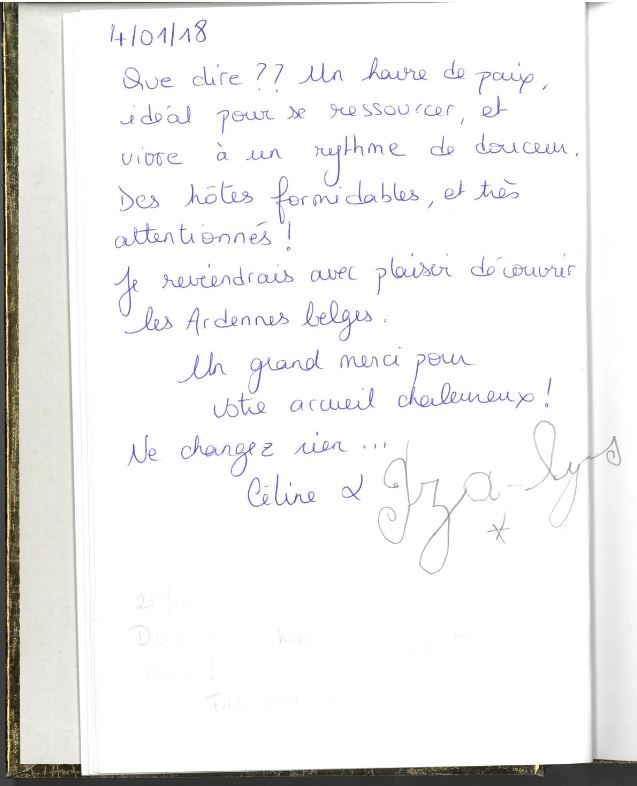 4/01/18
Que dire ?? Un havre de paix,
idéal pour se ressourcer, et
vivre à un rythme de douceur.
Des hôtes formidables, et très
attentionnés !
Je reviendrais avec plaisir découvrir
les Ardennes belges.
Un grand merci pour
votre accueil chaleureux !
Ne changez rien ...
Céline & Iza-lys
*